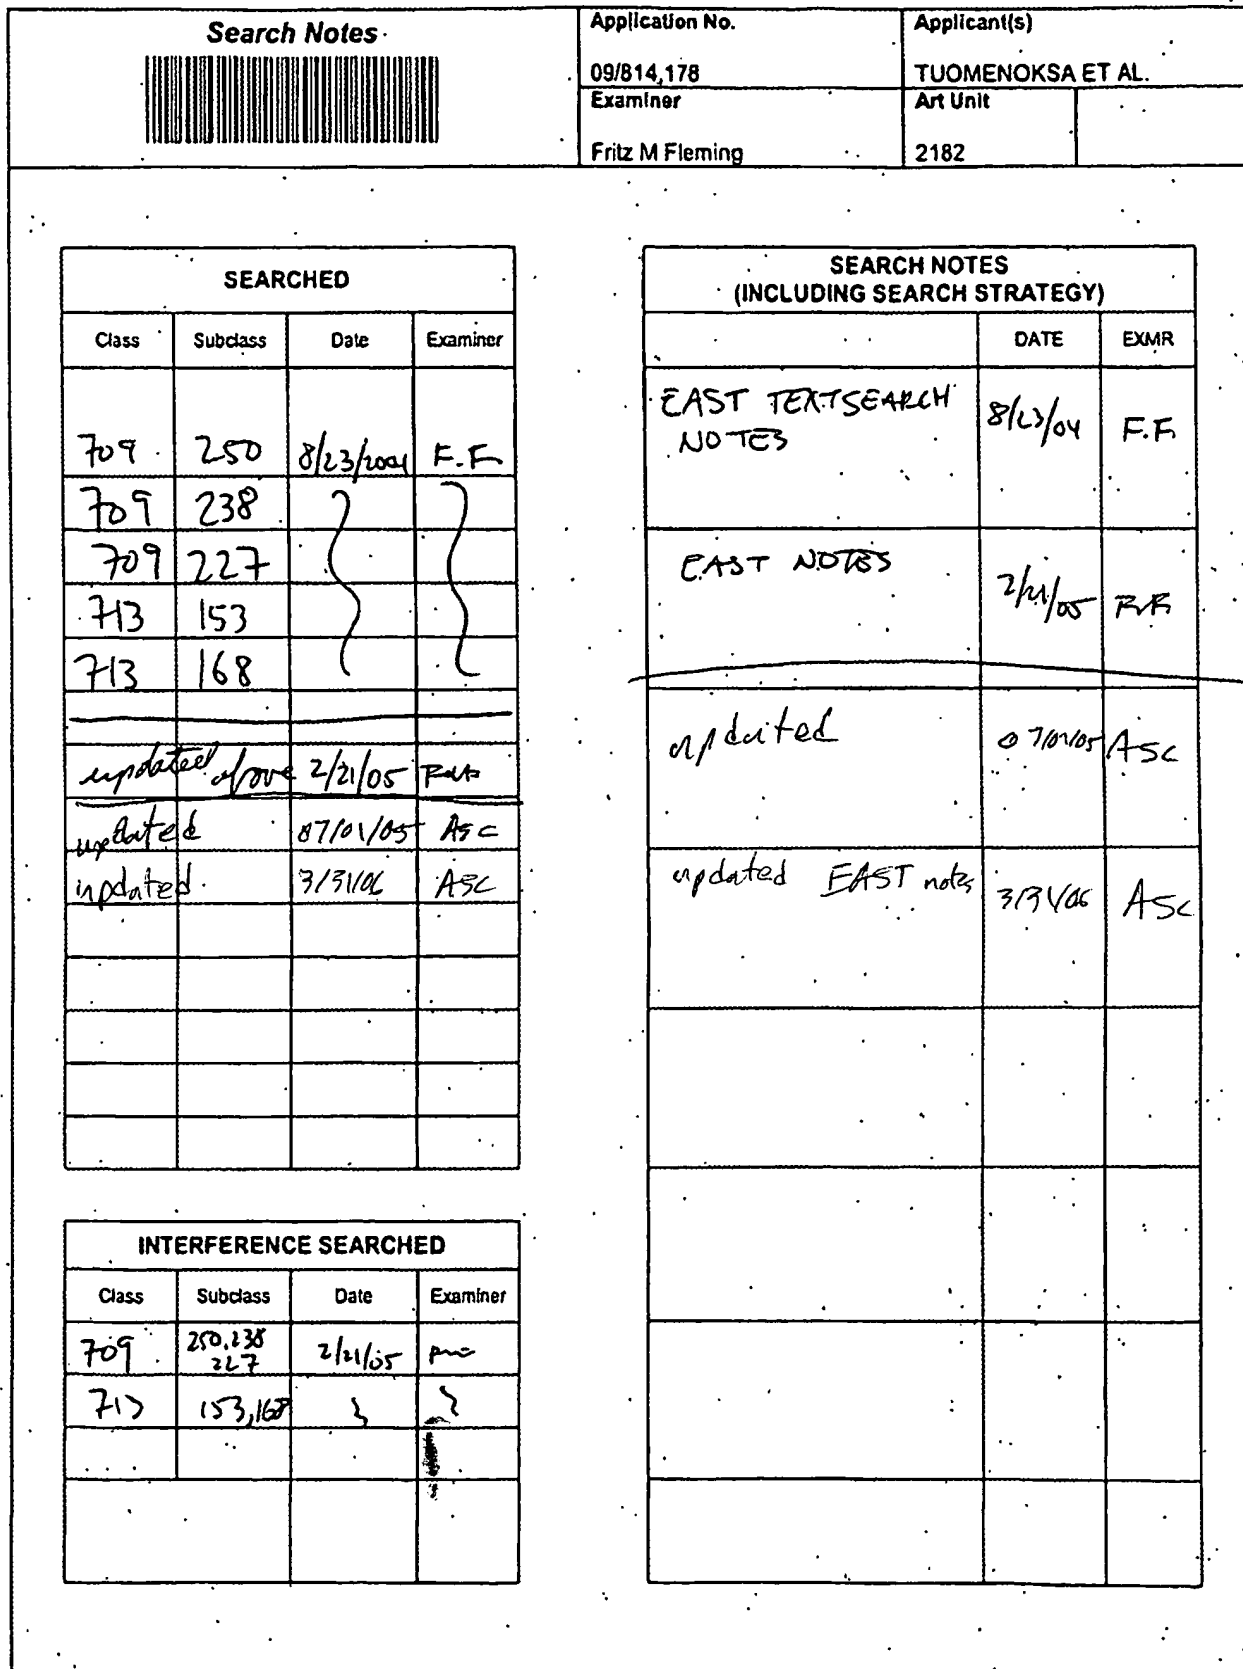 Search Notes
Application No.
Applicant(s)
09/814,178
TUOMENOKSA ET AL.
Examiner
Art Unit
Fritz M Fleming
2182
SEARCHED
Class Subclass Date Examiner
709 250 8/23/2004 F.F
709 238
709 227
713 153
713 168
updated above 2/21/05
updated 07/01/05 ASC
updated 3/31/06 ASC
INTERFERENCE SEARCHED
Class Subclass Date Examiner
709 250,238 227 2/21/05
713 153,168
SEARCH NOTES
(INCLUDING SEARCH STRATEGY)
DATE EXMR
EAST TEXTSEARCH 8/23/04 F.F.
NOTES
EAST NOTES 2/21/05
updated 07/01/05 ASC
updated EAST notes 3/31/06 ASC